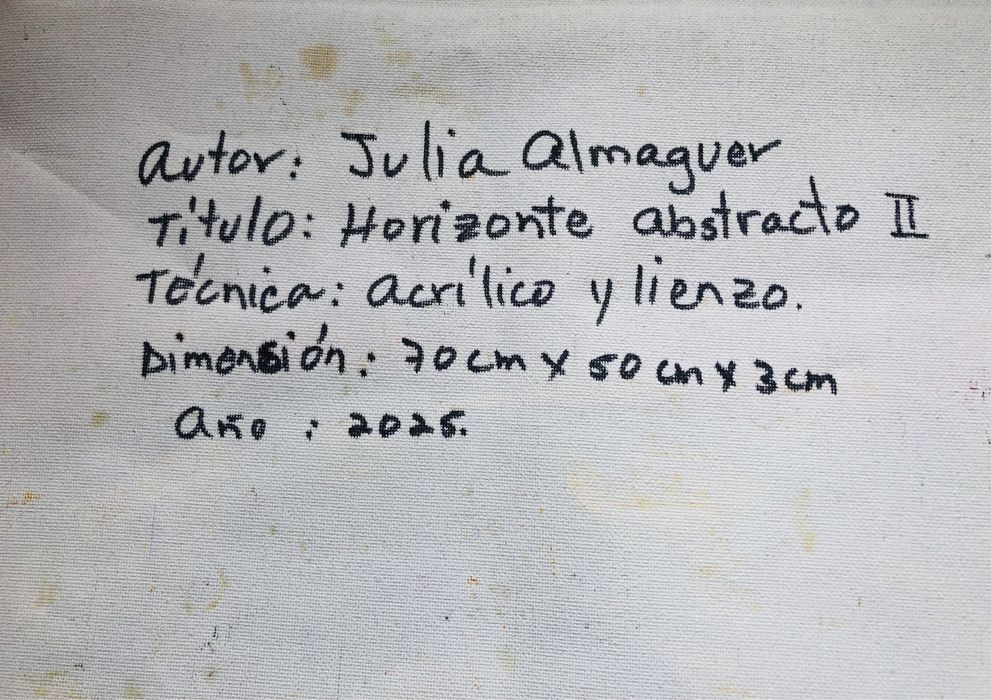 Autor: Julia Almaguer
Título: Horizonte abstracto II
Técnica: acrílico y lienzo.
Dimensión: 70 cm x 50 cm x 3 cm
Año : 2025.